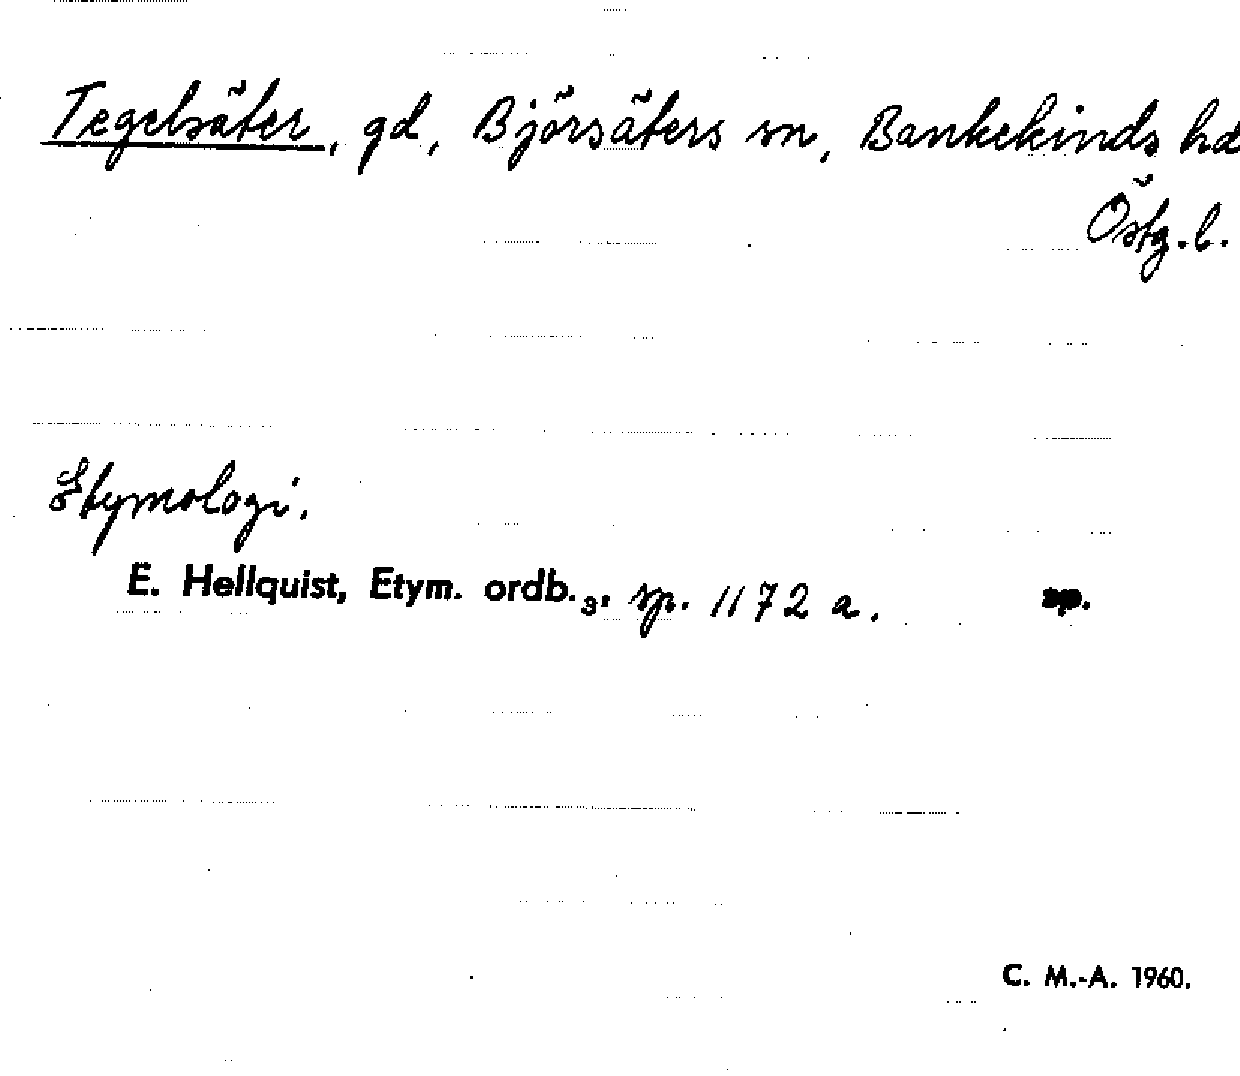 Tegelsäter, gd, Björsäters sn, Bankekinds hd
Östg. l.
Etymologi.
E. Hellquist, Etym. ordb.₃, sp. 1172 a.
C. M.-A. 1960.